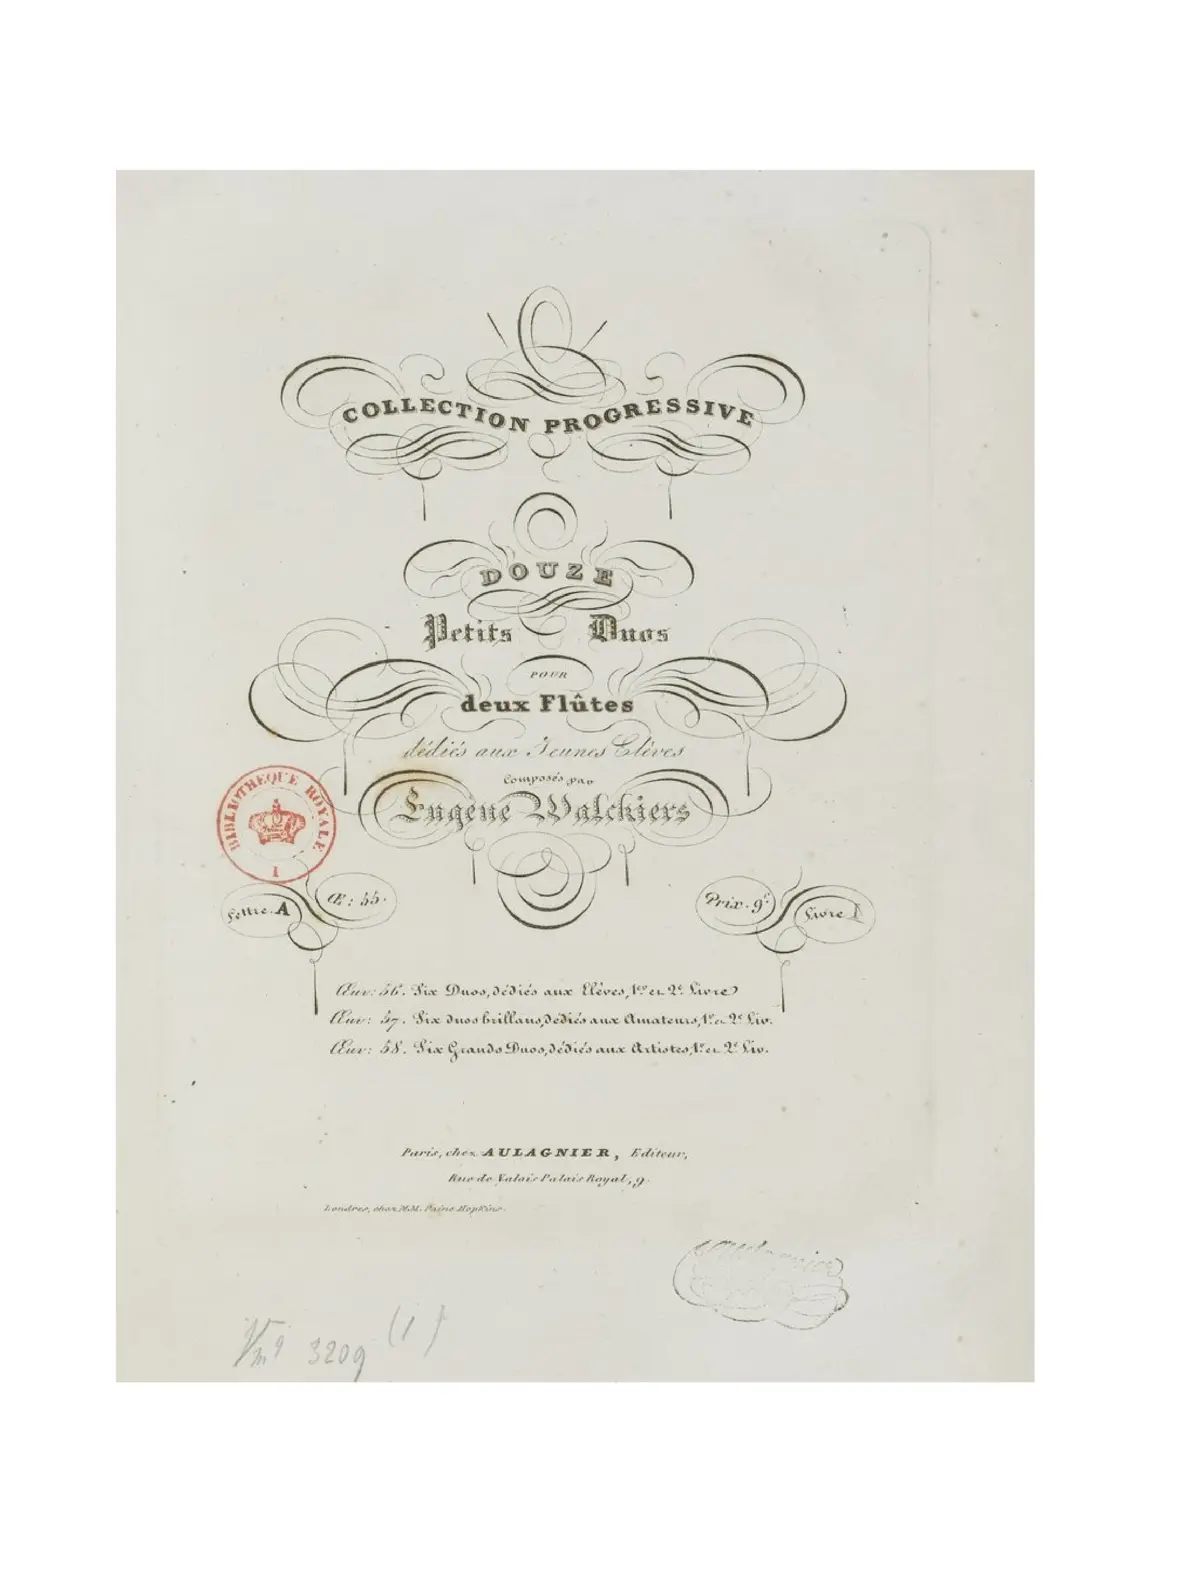 COLLECTION PROGRESSIVE
DOUZE
Petits Duos
POUR
deux Flûtes
dédiés aux Jeunes Elèves
Composés par
Eugène Walckiers
BIBLIOTHEQUE ROYALE
I
Lettre. A
Œ: 55.
Prix. 9f.
Livre I
Œuv: 56. Six Duos, dédiés aux Elèves, 1er et 2e Livre
Œuv: 57. Six duos brillans, dédiés aux Amateurs, 1er et 2e Liv.
Œuv: 58. Six Grands Duos, dédiés aux Artistes, 1er et 2e Liv.
Paris, chez AULAGNIER, Editeur,
Rue de Valois Palais Royal, 9.
Londres, chez MM. Paine Hopkins.
Aulagnier
Vm9 3209 (1)